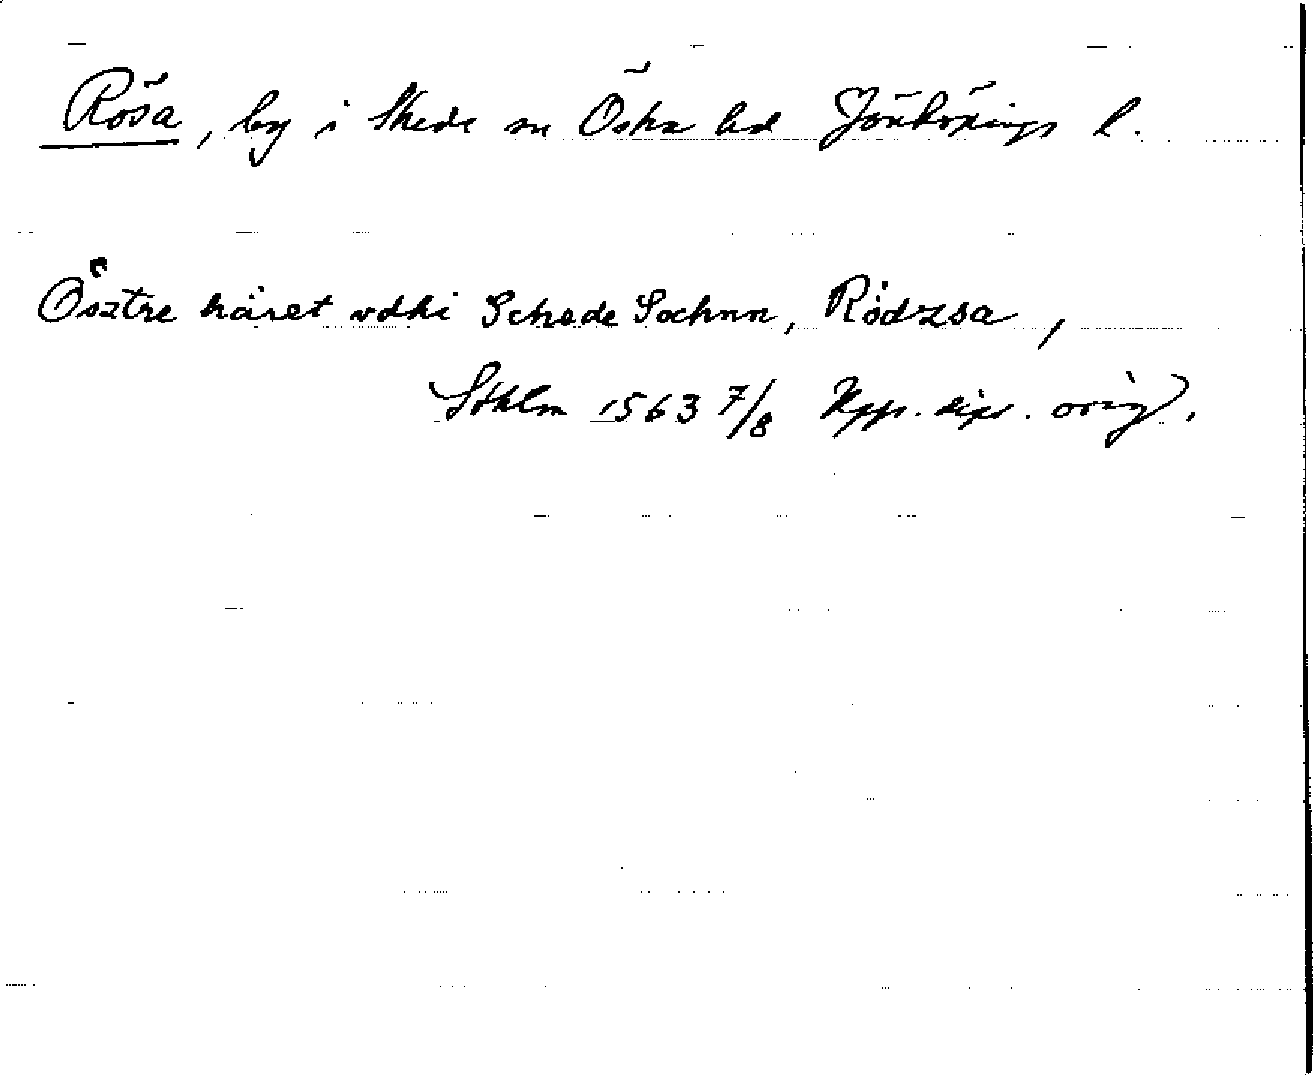 Rösa, by i Skede sn Östra hd Jönköpings l.
Ösztre häret vdhi Schede Sochnn, Rödzsa,
Sthlm 1563 7/8 Upp. dipl. orig.